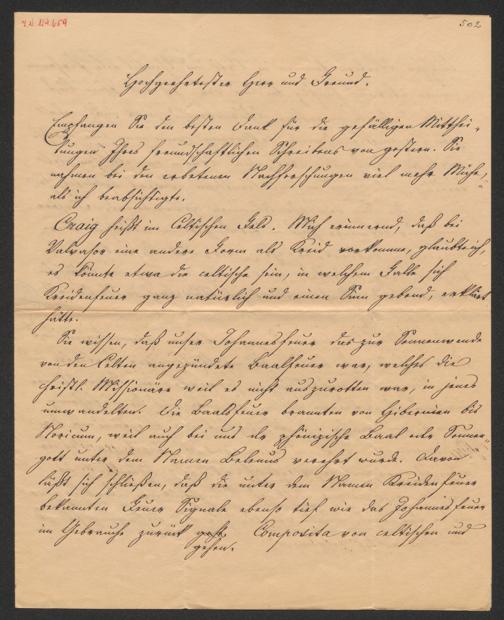 I.N. 119.659
502
Hochgeehrtester Herr und Freund.
Empfangen Sie den besten Dank für die gefälligen Mitthei-
lungen Ihres freundschaftlichen Schreibens von gestern. Sie
nahmen bei den erbetenen Nachforschungen viel mehr Mühe,
als ich beabsichtigte.
Craig heißt im Celtischen Fels. Mich erinnernd, daß bei
Valvasor eine andere Form als Kreid vorkomme, glaubte ich,
es könnte etwa die celtische sein, in welchem Falle sich
Kreidenfeuer ganz natürlich und einen Sinn gebend, erklärt
hätte.
Sie wissen, daß unser Johannesfeuer das zur Sonnenwende
von den Celten angezündete Baalfeuer war, welches die
christl. Missionäre weil es nicht auszurotten war, in jenes
umwandelten. Die Baalsfeuer brannten von Hibernien bis
Noricum, weil auch bei uns der phönizische Baal oder Sonnen-
gott unter dem Namen Belenus verehrt wurde. Davon
läßt sich schließen, daß die unter dem Namen Kreidenfeuer
bekannten Feuer Signale ebenso tief wie das Johannesfeuer
im Gebrauche zurück
gehen. Composita von celtischen und